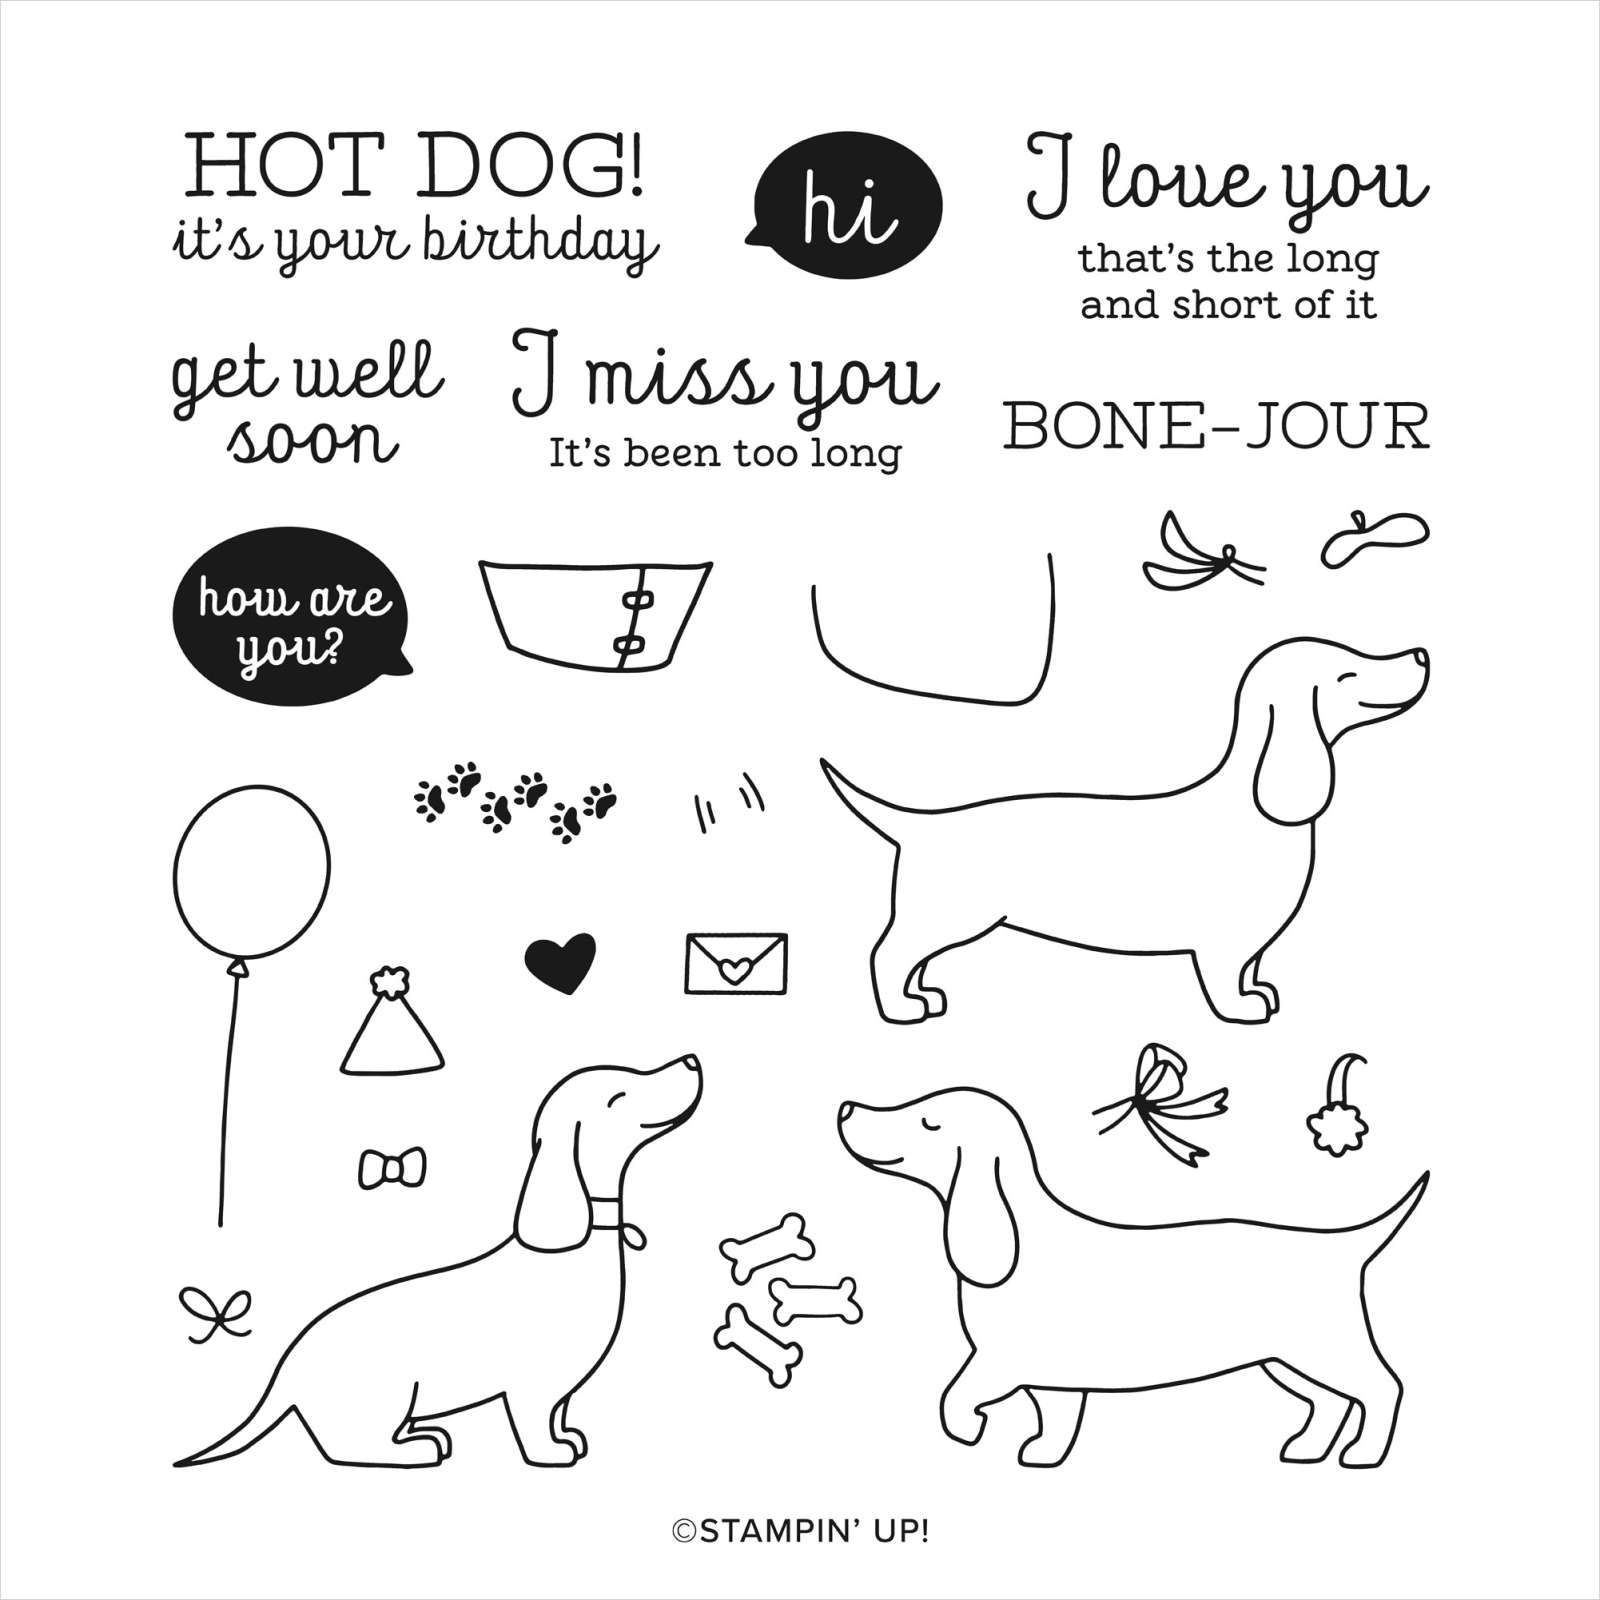 HOT DOG!
it's your birthday
hi
I love you
that's the long
and short of it
get well
soon
I miss you
It's been too long
BONE-JOUR
how are
you?
©STAMPIN' UP!